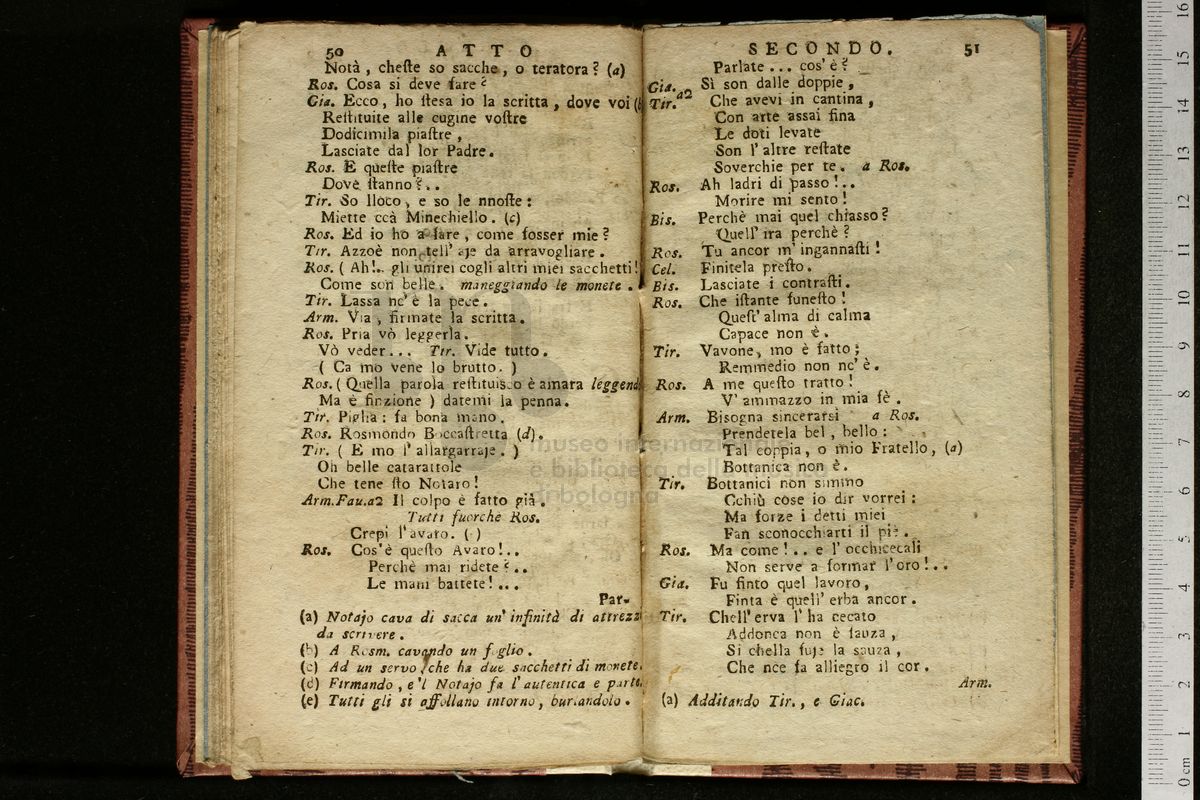 50 ATTO
Notà, cheste so sacche, o teratora? (a)
Ros. Cosa si deve fare?
Gia. Ecco, ho stesa io la scritta, dove voi (b
Restituite alle cugine vostre
Dodicimila piastre,
Lasciate dal lor Padre.
Ros. E queste piastre
Dove stanno?..
Tir. So lloco, e so le nnoste:
Miette ccà Minechiello. (c)
Ros. Ed io ho a fare, come fosser mie?
Tir. Azzoè non tell' aje da arravogliare.
Ros. ( Ah!.. gli unirei cogli altri miei sacchetti!
Come son belle. maneggiando le monete.
Tir. Lassa nc' è la pece.
Arm. Via, firmate la scritta.
Ros. Pria vò leggerla.
Vò veder... Tir. Vide tutto.
( Ca mo vene lo brutto. )
Ros. ( Quella parola restituisco è amara leggend
Ma è finzione ) datemi la penna.
Tir. Piglia: fa bona mano.
Ros. Rosmondo Boccastretta (d).
Tir. ( E mo l' allargarraje. )
Oh belle catarattole
Che tene sto Notaro!
Arm. Fau. a2 Il colpo è fatto già.
Tutti fuorchè Ros.
Crepi l'avaro. ( )
Ros. Cos'è questo Avaro!..
Perchè mai ridete?..
Le mani battete!...
Par-
(a) Notajo cava di sacca un' infinità di attrezzi
da scrivere.
(b) A Rosm. cavando un foglio.
(c) Ad un servo, che ha due sacchetti di monete.
(d) Firmando, e 'l Notajo fa l'autentica e parte.
(e) Tutti gli si affollano intorno, burlandolo.
SECONDO. 51
Parlate... cos' è?
Gia. Sì son dalle doppie,
Tir. a2 Che avevi in cantina,
Con arte assai fina
Le doti levate
Son l' altre restate
Soverchie per te. a Ros.
Ros. Ah ladri di passo!..
Morire mi sento!
Bis. Perchè mai quel chiasso?
Quell' ira perchè?
Ros. Tu ancor m' ingannasti!
Cel. Finitela presto.
Bis. Lasciate i contrasti.
Ros. Che istante funesto!
Quest' alma di calma
Capace non è.
Tir. Vavone, mo è fatto;
Remmedio non nc' è.
Ros. A me questo tratto!
V' ammazzo in mia fè.
Arm. Bisogna sincerarsi a Ros.
Prendetela bel, bello:
Tal coppia, o mio Fratello, (a)
Bottanica non è.
Tir. Bottanici non simmo
Cchiù cose io dir vorrei:
Ma forze i detti miei
Fan sconocchiarti il piè.
Ros. Ma come!.. e l' occhicecali
Non serve a formar l'oro!..
Gia. Fu finto quel lavoro,
Finta è quell' erba ancor.
Tir. Chell' erva l' ha cecato
Addonca non è fauza,
Si chella fuje la sauza,
Che nce fa alliegro il cor.
Arm.
(a) Additando Tir., e Giac.
museo internazionale
e biblioteca della musica
di bologna